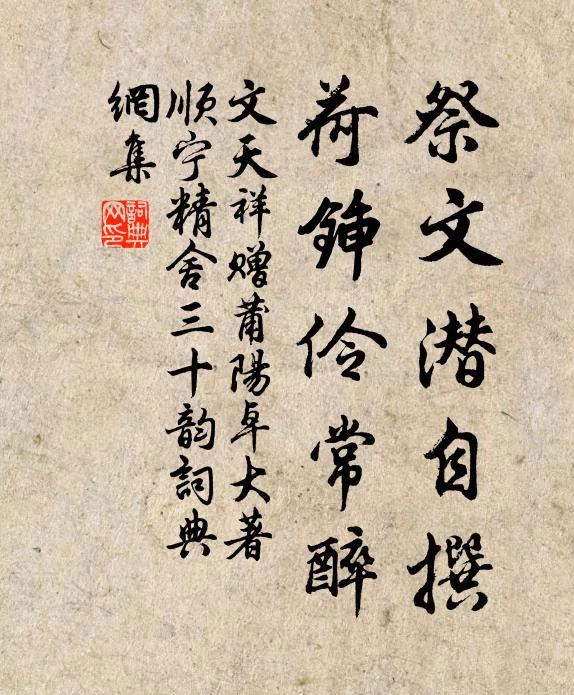 祭文潜自撰
荷鍤伶常醉
文天祥赠莆陽卓大著
顺宁精舍三十韵詞典
網集
詞典
网印